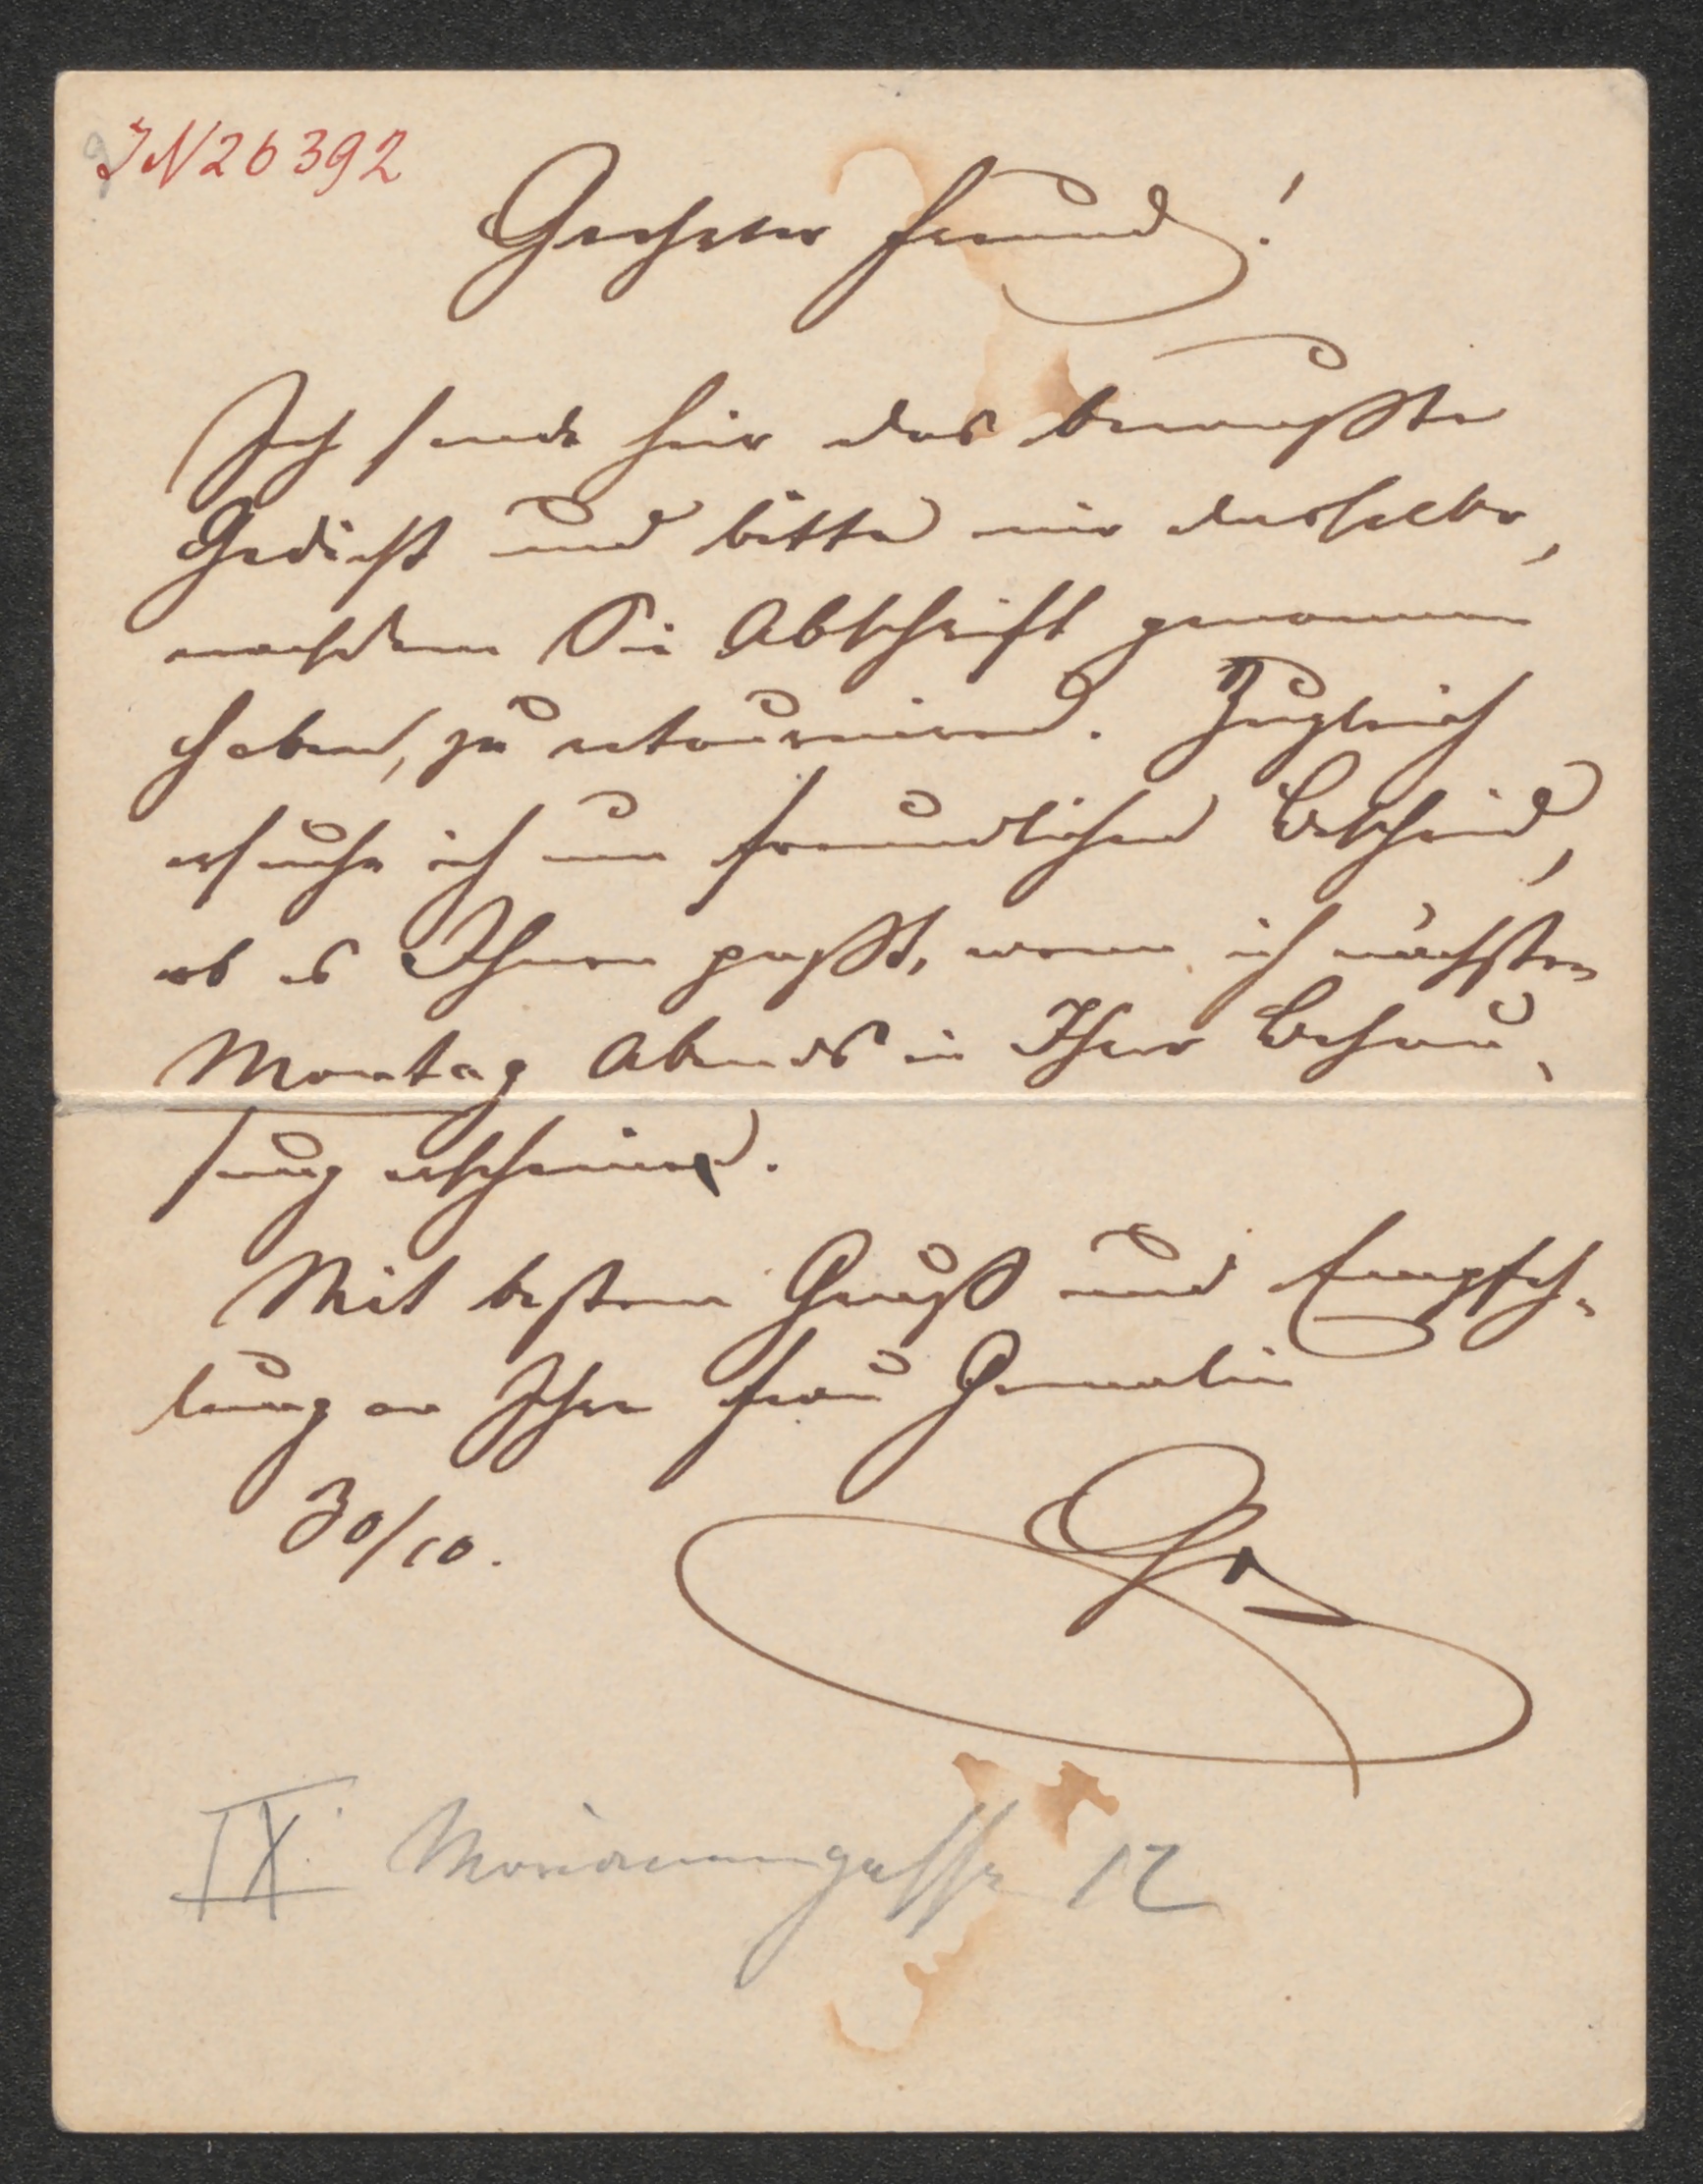 IN 26392
Geehrter Freund!
Ich sende hier das bewußte
Gedicht und bitte mir dasselbe,
nachdem Sie Abschrift genommen
haben, zu retourniren. Zugleich
ersuche ich um freundlichen Bescheid,
ob es Ihnen paßt, wenn ich nächsten
Montag Abends in Ihrer Behau-
sung erscheine.
Mit bestem Gruß und Empfeh-
lung an Ihre Frau Gemalin
30/10.
IX. Mariannengasse 12